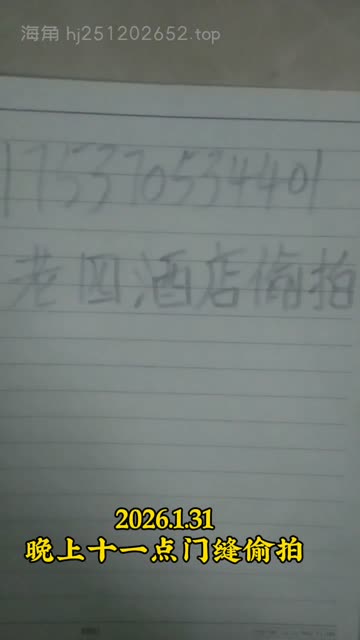 海角 hj251202652.top
175370534401
老四,酒店偷拍
2026.1.31
晚上十一点门缝偷拍